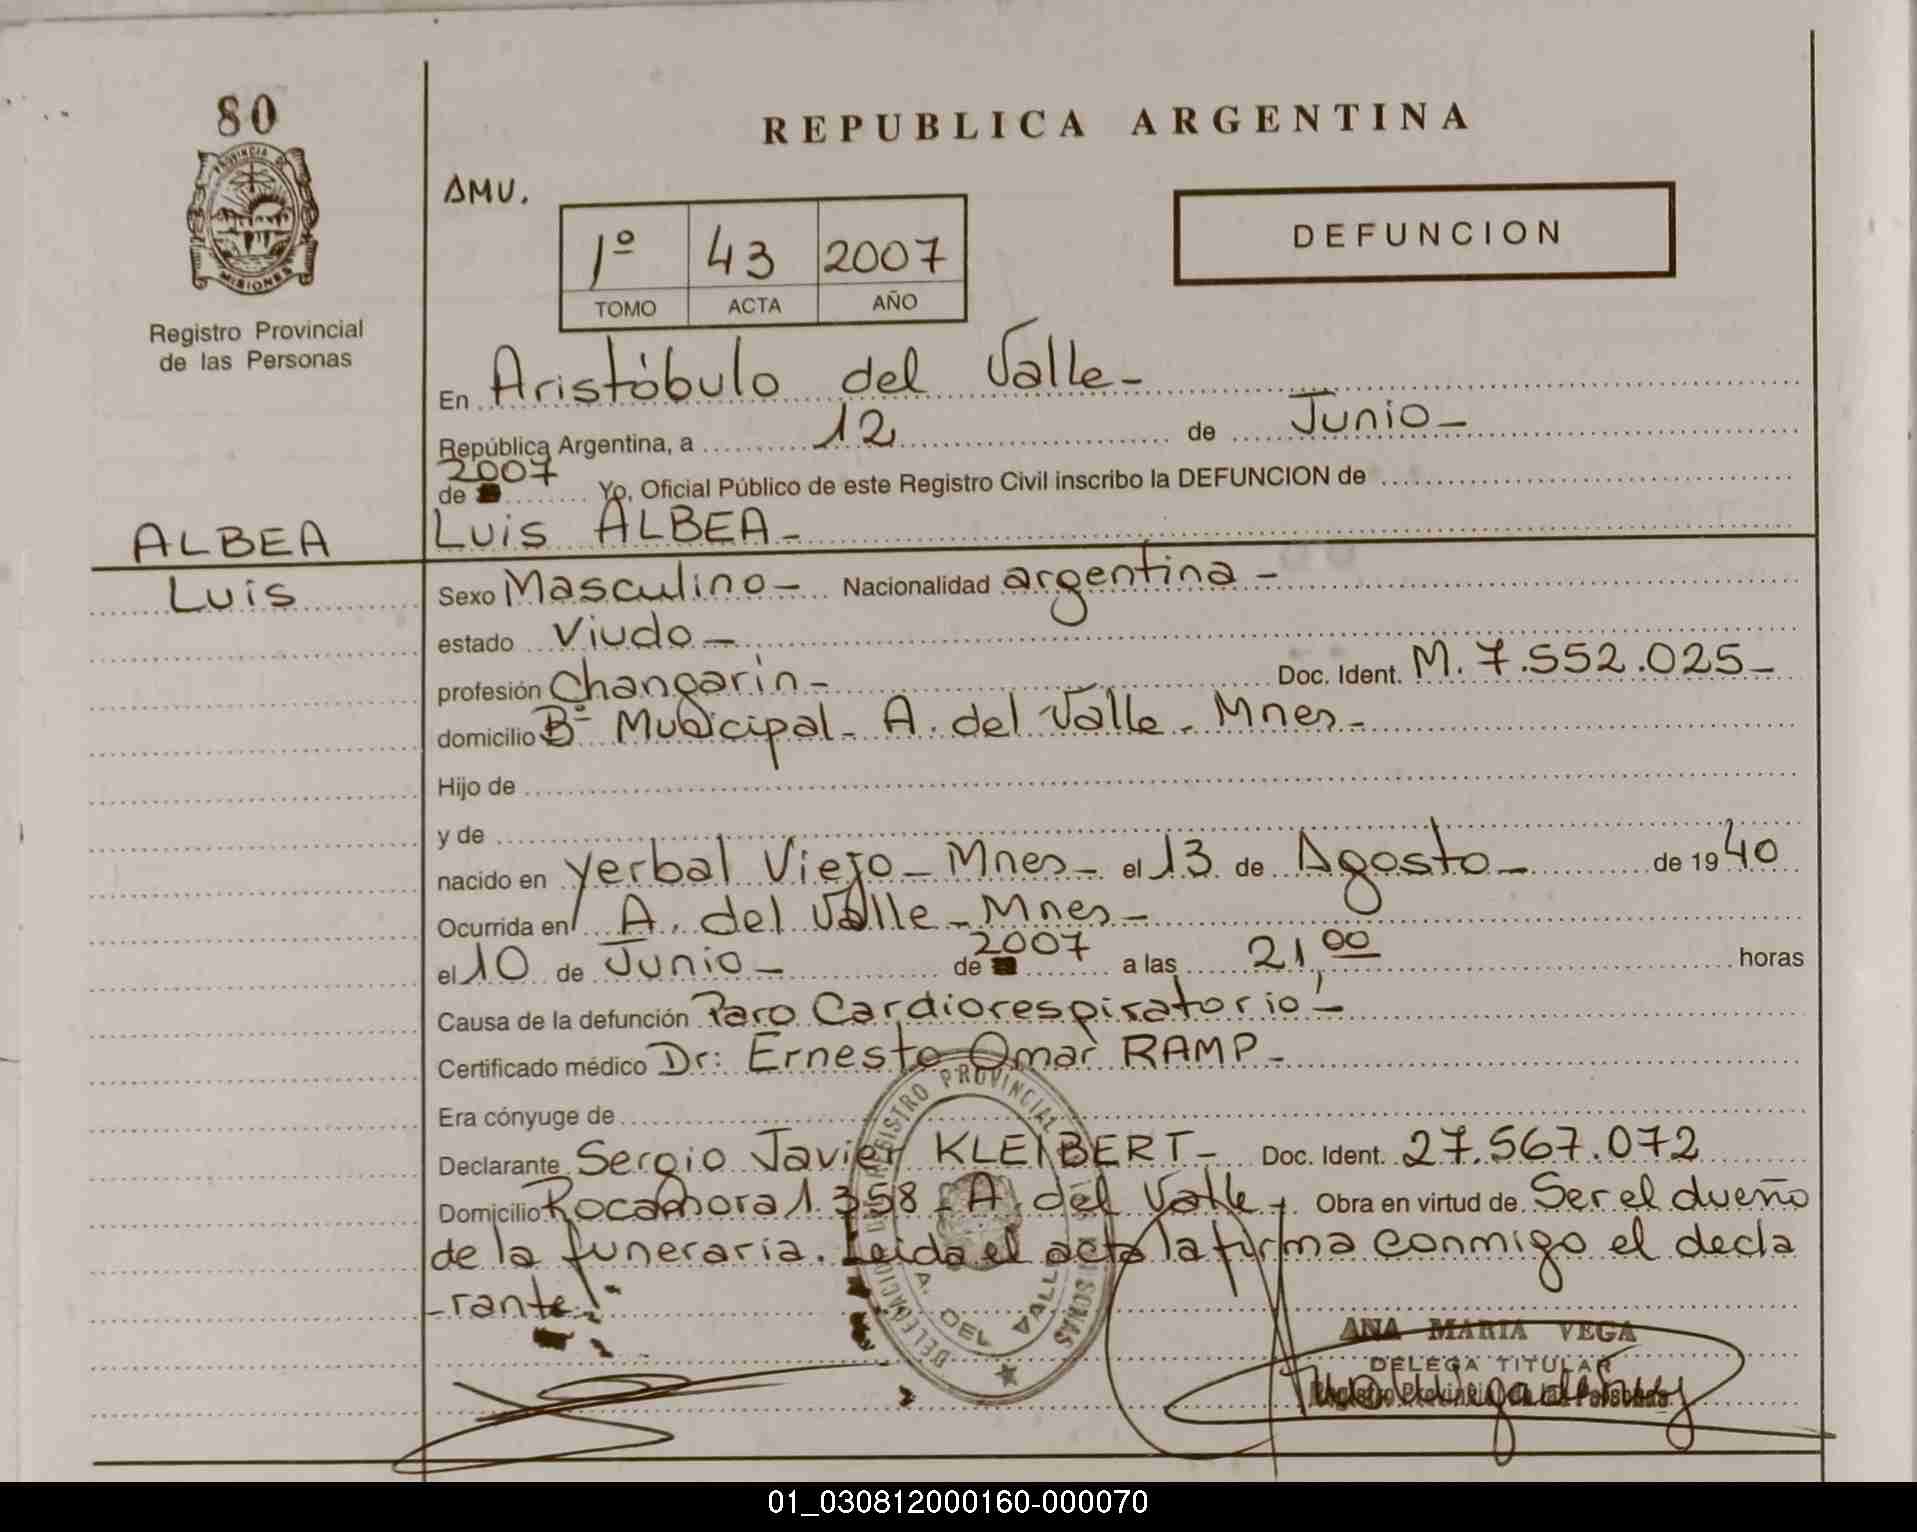 80
REPUBLICA ARGENTINA
PROVINCIA DE
MISIONES
AMU.
1º 43 2007
TOMO ACTA AÑO
DEFUNCION
Registro Provincial
de las Personas
En Aristóbulo del Valle-
República Argentina, a 12 de Junio-
2007
de Yo, Oficial Público de este Registro Civil inscribo la DEFUNCION de
ALBEA Luis ALBEA-
Luis Sexo Masculino- Nacionalidad argentina-
estado Viudo-
profesión Changarín- Doc. Ident. M. 7.552.025-
domicilio Bº Municipal- A. del Valle- Mnes-
Hijo de
y de
nacido en Yerbal Viejo- Mnes- el 13 de Agosto- de 1940
Ocurrida en A. del Valle- Mnes-
el 10 de Junio- de 2007 a las 21,00 horas
Causa de la defunción Paro Cardiorespiratorio-
Certificado médico Dr: Ernesto Omar RAMP-
Era cónyuge de
Declarante Sergio Javier KLEIBERT- Doc. Ident. 27.567.072
Domicilio Rocamora 1.358- A del Valle- Obra en virtud de Ser el dueño
de la funeraria. Leida el acta la firma conmigo el decla
-rante!-
DELEGACION REGISTRO PROVINCIAL PERSONAS
A. DEL VALLE
ANA MARIA VEGA
DELEGA TITULAR
Registro Provincial de las Personas
01_030812000160-000070